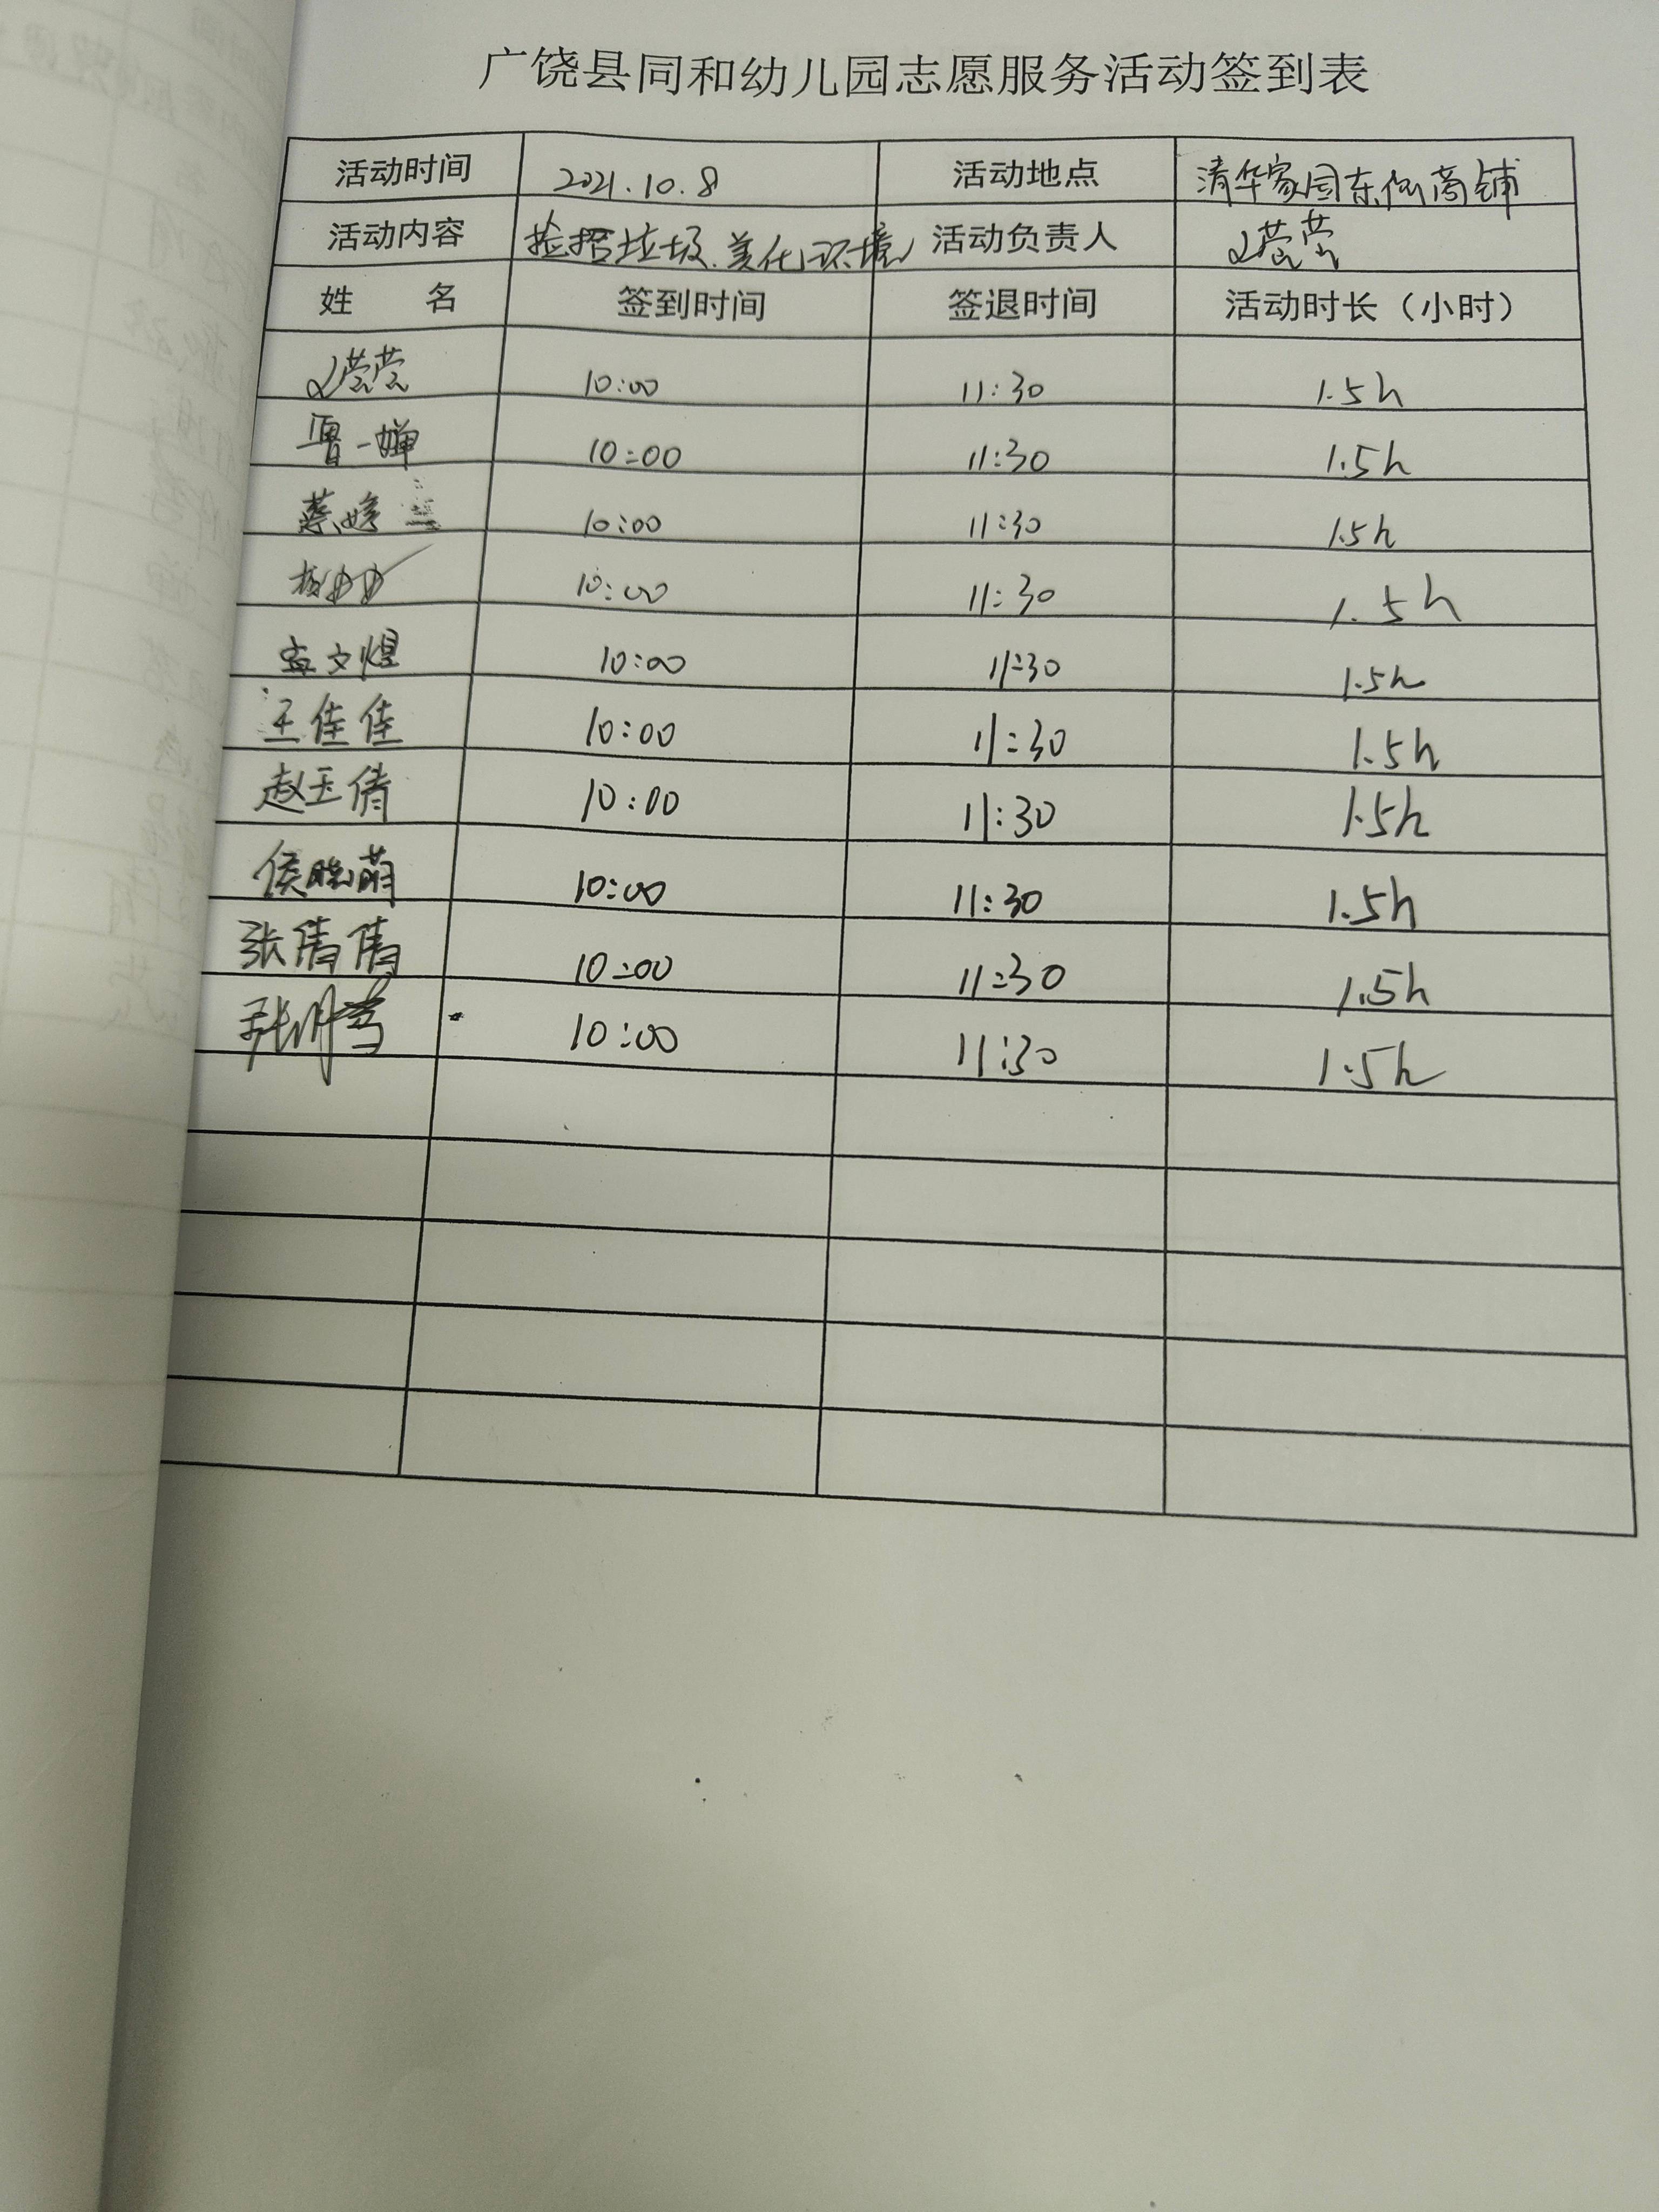 广饶县同和幼儿园志愿服务活动签到表
活动时间 2021.10.8 活动地点 清华家园东侧商铺
活动内容 捡拾垃圾.美化环境 活动负责人
姓 名 签到时间 签退时间 活动时长（小时）
10:00 11:30 1.5h
10:00 11:30 1.5h
10:00 11:30 1.5h
10:00 11:30 1.5h
10:00 11:30 1.5h
王佳佳 10:00 11:30 1.5h
赵玉倩 10:00 11:30 1.5h
侯晓萌 10:00 11:30 1.5h
张倩倩 10:00 11:30 1.5h
10:00 11:30 1.5h